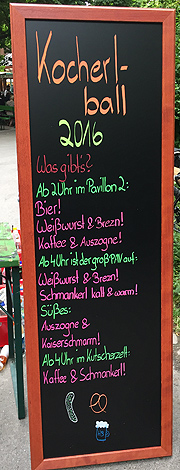 Kocherl-
ball
2016
Was gibt's?
Ab 2 Uhr im Pavillon 2:
Bier!
Weißwurst & Brezn!
Kaffee & Auszogne!
Ab 4 Uhr ist der groß PAV auf:
Weißwurst & Brezn!
Schmankerl kalt & warm!
Süßes:
Auszogne &
Kaiserschmarrn!
Ab 4 Uhr im Kutscherzelt:
Kaffee & Schmankerl!